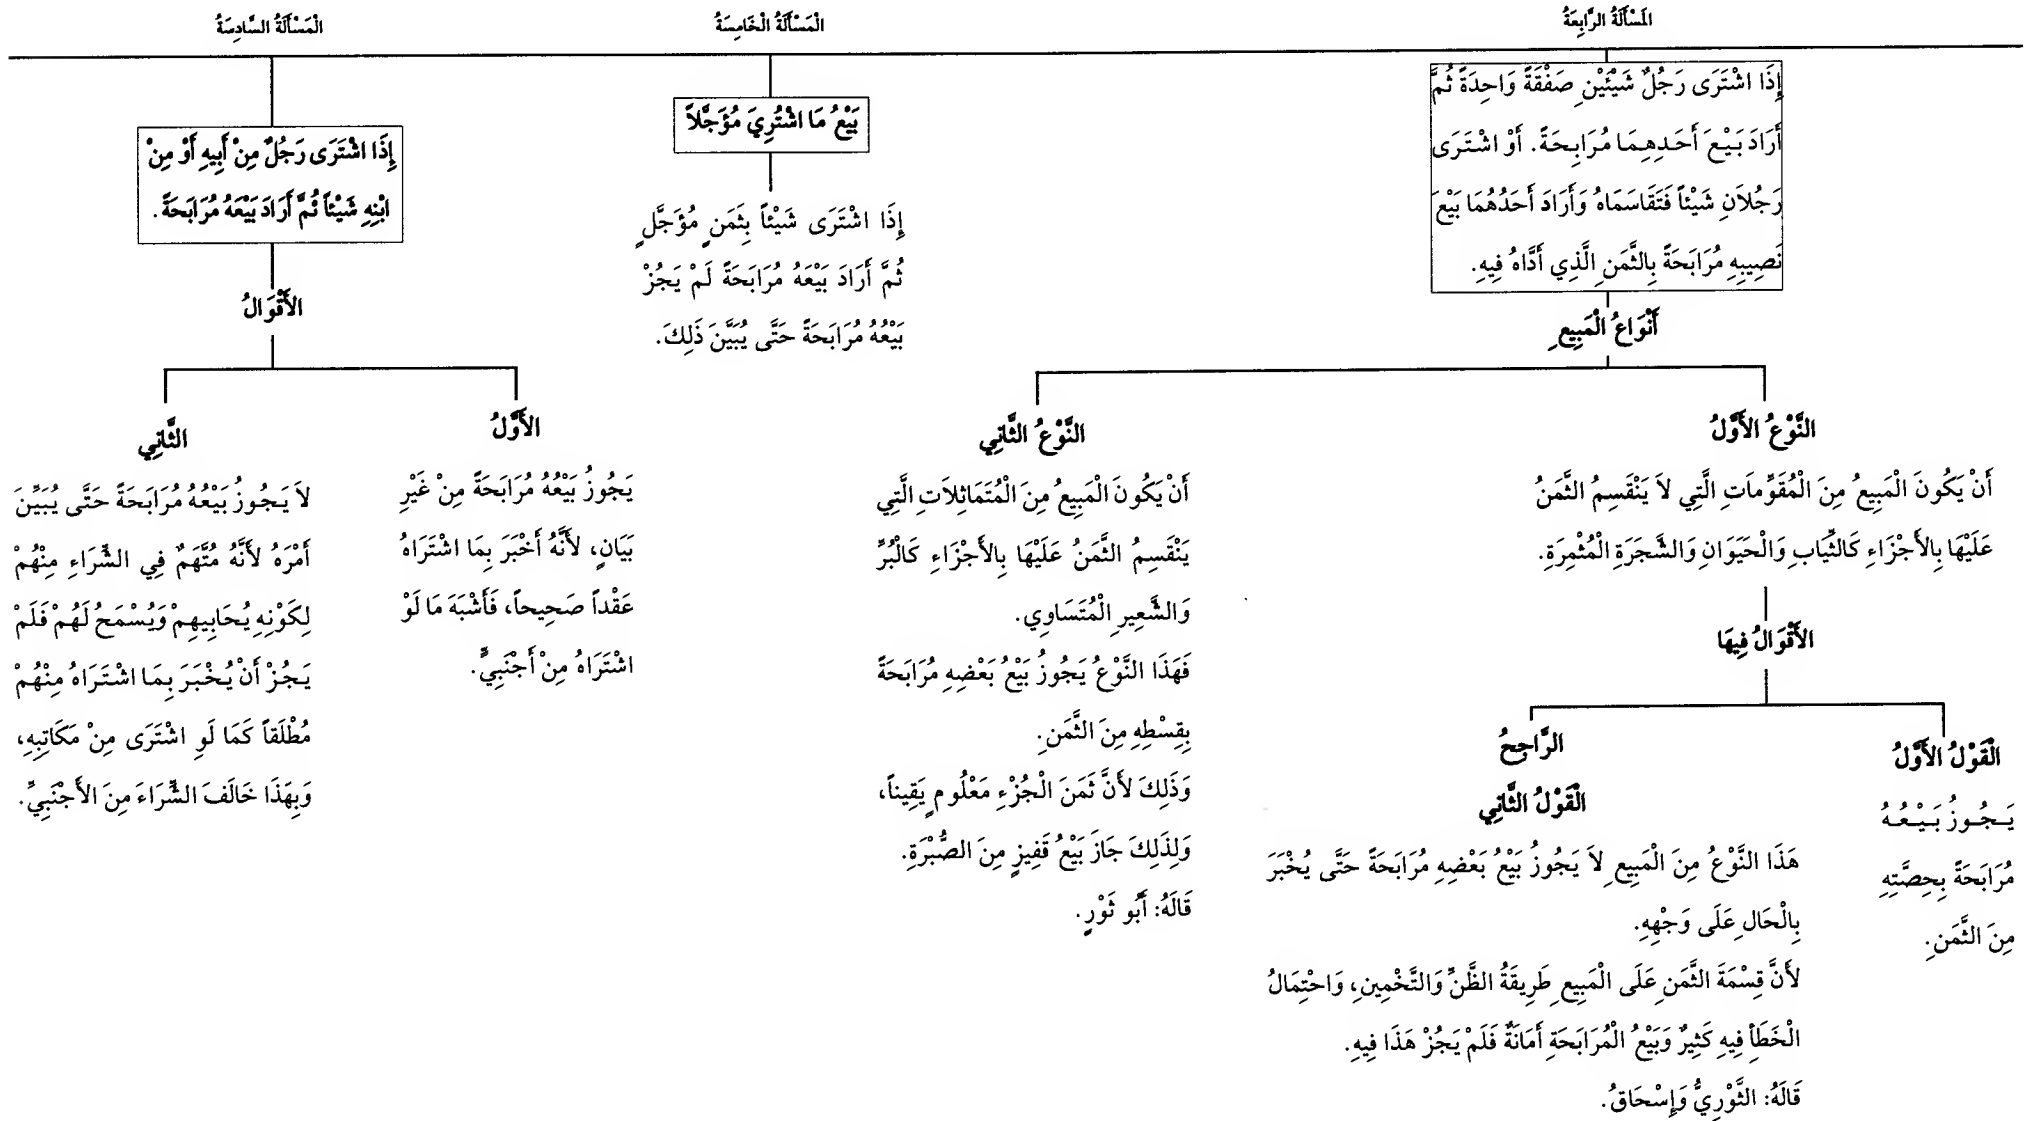 الْمَسْأَلَةُ الرَّابِعَةُ
إِذَا اشْتَرَى رَجُلٌ شَيْئَيْنِ صَفْقَةً وَاحِدَةً ثُمَّ
أَرَادَ بَيْعَ أَحَدِهِمَا مُرَابِحَةً. أَوْ اشْتَرَى
رَجُلاَنِ شَيْئاً فَتَقَاسَمَاهُ وَأَرَادَ أَحَدُهُمَا بَيْعَ
نَصِيبِهِ مُرَابَحَةً بِالثَّمَنِ الَّذِي أَدَّاهُ فِيهِ.
أَنْوَاعُ الْمَبِيعِ
النَّوْعُ الأَوَّلُ
أَنْ يَكُونَ الْمَبِيعُ مِنَ الْمُقَوِّمَاتِ الَّتِي لاَ يَنْقَسِمُ الثَّمَنُ
عَلَيْهَا بِالأَجْزَاءِ كَالثِّيَابِ وَالْحَيَوَانِ وَالشَّجَرَةِ الْمُثْمِرَةِ.
الأَقْوَالُ فِيهَا
الْقَوْلُ الأَوَّلُ
يَجُوزُ بَيْعُهُ
مُرَابَحَةً بِحِصَّتِهِ
مِنَ الثَّمَنِ.
الرَّاجِحُ
الْقَوْلُ الثَّانِي
هَذَا النَّوْعُ مِنَ الْمَبِيعِ لاَ يَجُوزُ بَيْعُ بَعْضِهِ مُرَابَحَةً حَتَّى يُخْبَرَ
بِالْحَالِ عَلَى وَجْهِهِ.
لأَنَّ قِسْمَةَ الثَّمَنِ عَلَى الْمَبِيعِ طَرِيقَةُ الظَّنِّ وَالتَّخْمِينِ، وَاحْتِمَالُ
الْخَطَأِ فِيهِ كَثِيرٌ وَبَيْعُ الْمُرَابَحَةِ أَمَانَةٌ فَلَمْ يَجُزْ هَذَا فِيهِ.
قَالَهُ: الثَّوْرِيُّ وَإِسْحَاقُ.
النَّوْعُ الثَّانِي
أَنْ يَكُونَ الْمَبِيعُ مِنَ الْمُتَمَاثِلاَتِ الَّتِي
يَنْقَسِمُ الثَّمَنُ عَلَيْهَا بِالأَجْزَاءِ كَالْبُرِّ
وَالشَّعِيرِ الْمُتَسَاوِي.
فَهَذَا النَّوْعُ يَجُوزُ بَيْعُ بَعْضِهِ مُرَابَحَةً
بِقِسْطِهِ مِنَ الثَّمَنِ.
وَذَلِكَ لأَنَّ ثَمَنَ الْجُزْءِ مَعْلُومٍ يَقِيناً،
وَلِذَلِكَ جَازَ بَيْعُ قَفِيزٍ مِنَ الصُّبْرَةِ.
قَالَهُ: أَبُو ثَوْرٍ.
الْمَسْأَلَةُ الْخَامِسَةُ
بَيْعُ مَا اشْتُرِيَ مُؤَجَّلاً
إِذَا اشْتَرَى شَيْئاً بِثَمَنٍ مُؤَجَّلٍ
ثُمَّ أَرَادَ بَيْعَهُ مُرَابَحَةً لَمْ يَجُزْ
بَيْعُهُ مُرَابَحَةً حَتَّى يُبَيَّنَ ذَلِكَ.
الْمَسْأَلَةُ السَّادِسَةُ
إِذَا اشْتَرَى رَجُلٌ مِنْ أَبِيهِ أَوْ مِنْ
ابْنِهِ شَيْئاً ثُمَّ أَرَادَ بَيْعَهُ مُرَابَحَةً.
الأَقْوَالُ
الأَوَّلُ
يَجُوزُ بَيْعُهُ مُرَابَحَةً مِنْ غَيْرِ
بَيَانٍ، لأَنَّهُ أَخْبَرَ بِمَا اشْتَرَاهُ
عَقْداً صَحِيحاً، فَأَشْبَهَ مَا لَوْ
اشْتَرَاهُ مِنْ أَجْنَبِيٍّ.
الثَّانِي
لاَ يَجُوزُ بَيْعُهُ مُرَابَحَةً حَتَّى يُبَيِّنَ
أَمْرَهُ لأَنَّهُ مُتَّهَمٌ فِي الشِّرَاءِ مِنْهُمْ
لِكَوْنِهِ يُحَابِيهِمْ وَيُسْمَحُ لَهُمْ فَلَمْ
يَجُزْ أَنْ يُخْبَرَ بِمَا اشْتَرَاهُ مِنْهُمْ
مُطْلَقاً كَمَا لَوِ اشْتَرَى مِنْ مَكَاتِبِهِ،
وَبِهَذَا خَالَفَ الشِّرَاءَ مِنَ الأَجْنَبِيِّ.